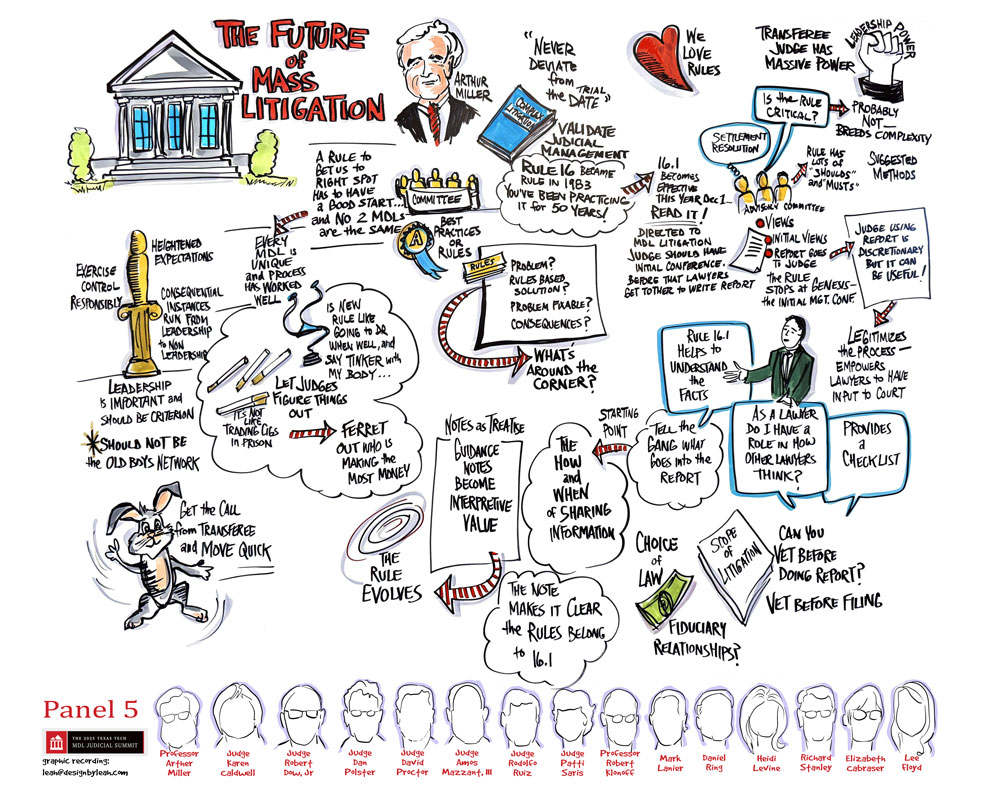 THE FUTURE
of
MASS
LITIGATION
ARTHUR
MILLER
"NEVER
DEVIATE
from TRIAL
the DATE"
COMPLEX
LITIGATION
VALIDATE
JUDICIAL
MANAGEMENT
WE
LOVE
RULES
TRANSFEREE
JUDGE HAS
MASSIVE POWER
LEADERSHIP POWER
IS the RULE
CRITICAL?
PROBABLY
NOT—
BREEDS COMPLEXITY
SETTLEMENT
RESOLUTION
ADVISORY COMMITTEE
RULE HAS
LOTS OF
"SHOULDS"
and "MUSTS"
SUGGESTED
METHODS
A RULE to
BET US to
RIGHT SPOT
HAS to HAVE
A GOOD START...
and NO 2 MDLs
are the SAME
COMMITTEE
A
BEST
PRACTICES
OR
RULES
RULE 16 BECAME
RULE IN 1983
YOU'VE BEEN PRACTICING
IT for 50 YEARS!
16.1
BECOMES
EFFECTIVE
THIS YEAR Dec 1—
READ IT!
DIRECTED TO
MDL LITIGATION
JUDGE SHOULD HAVE
INITAL CONFERENCE.
BEFORE THAT LAWYERS
GET TOTHER to WRITE REPORT
VIEWS
INITIAL VIEWS
REPORT GOES
to JUDGE
the RULE
STOPS at GENESIS—
the INITIAL MGT. CONF.
JUDGE USING
REPORT IS
DISCRETIONARY
BUT IT CAN
BE USEFUL!
LEGITIMIZES
the PROCESS—
EMPOWERS
LAWYERS to HAVE
INPUT to COURT
EVERY
MDL IS
UNIQUE
and PROCESS
HAS WORKED
WELL
HEIGHTENED
EXPECTATIONS
EXERCISE
CONTROL
RESPONSIBLY
CONSEQUENTIAL
INSTANCES
RUN FROM
LEADERSHIP
to NON
LEADERSHIP
LEADERSHIP
IS IMPORTANT and
SHOULD BE CRITERION
SHOULD NOT BE
the OLD BOYS NETWORK
IS NEW
RULE LIKE
GOING to DR
WHEN WELL, and
SAY TINKER with
MY BODY...
LET JUDGES
FIGURE THINGS
OUT
IT'S NOT
LIKE
TRADING CIGS
IN PRISON
FERRET
OUT WHO IS
MAKING the
MOST MONEY
RULES
PROBLEM?
RULES BASED
SOLUTION?
PROBLEM FIXABLE?
CONSEQUENCES?
WHAT'S
AROUND the
CORNER?
RULE 16.1
HELPS to
UNDERSTAND
the
FACTS
AS A LAWYER
DO I HAVE A
ROLE IN HOW
OTHER LAWYERS
THINK?
PROVIDES
A
CHECKLIST
STARTING
POINT
TELL the
GANG WHAT
GOES INTO the
REPORT
THE
HOW
and
WHEN
of SHARING
INFORMATION
NOTES as TREATISE
GUIDANCE
NOTES
BECOME
INTERPRETIVE
VALUE
THE
RULE
EVOLVES
THE NOTE
MAKES IT CLEAR
the RULES BELONG
to 16.1
GET the CALL
from TRANSFEREE
and MOVE QUICK
CHOICE
of
LAW
FIDUCIARY
RELATIONSHIPS?
SCOPE
OF
LITIGATION
CAN YOU
VET BEFORE
DOING REPORT?
VET BEFORE FILING
Panel 5
THE 2025 TEXAS TECH
MDL JUDICIAL SUMMIT
graphic recording:
leah@designbyleah.com
Professor
Arther
Miller
Judge
Karen
Caldwell
Judge
Robert
Dow, Jr
Judge
Dan
Polster
Judge
David
Proctor
Judge
Amos
Mazzant, III
Judge
Rodolfo
Ruiz
Judge
Patti
Saris
Professor
Robert
Klonoff
Mark
Lanier
Daniel
Ring
Heidi
Levine
Richard
Stanley
Elizabeth
Cabraser
Lee
Floyd